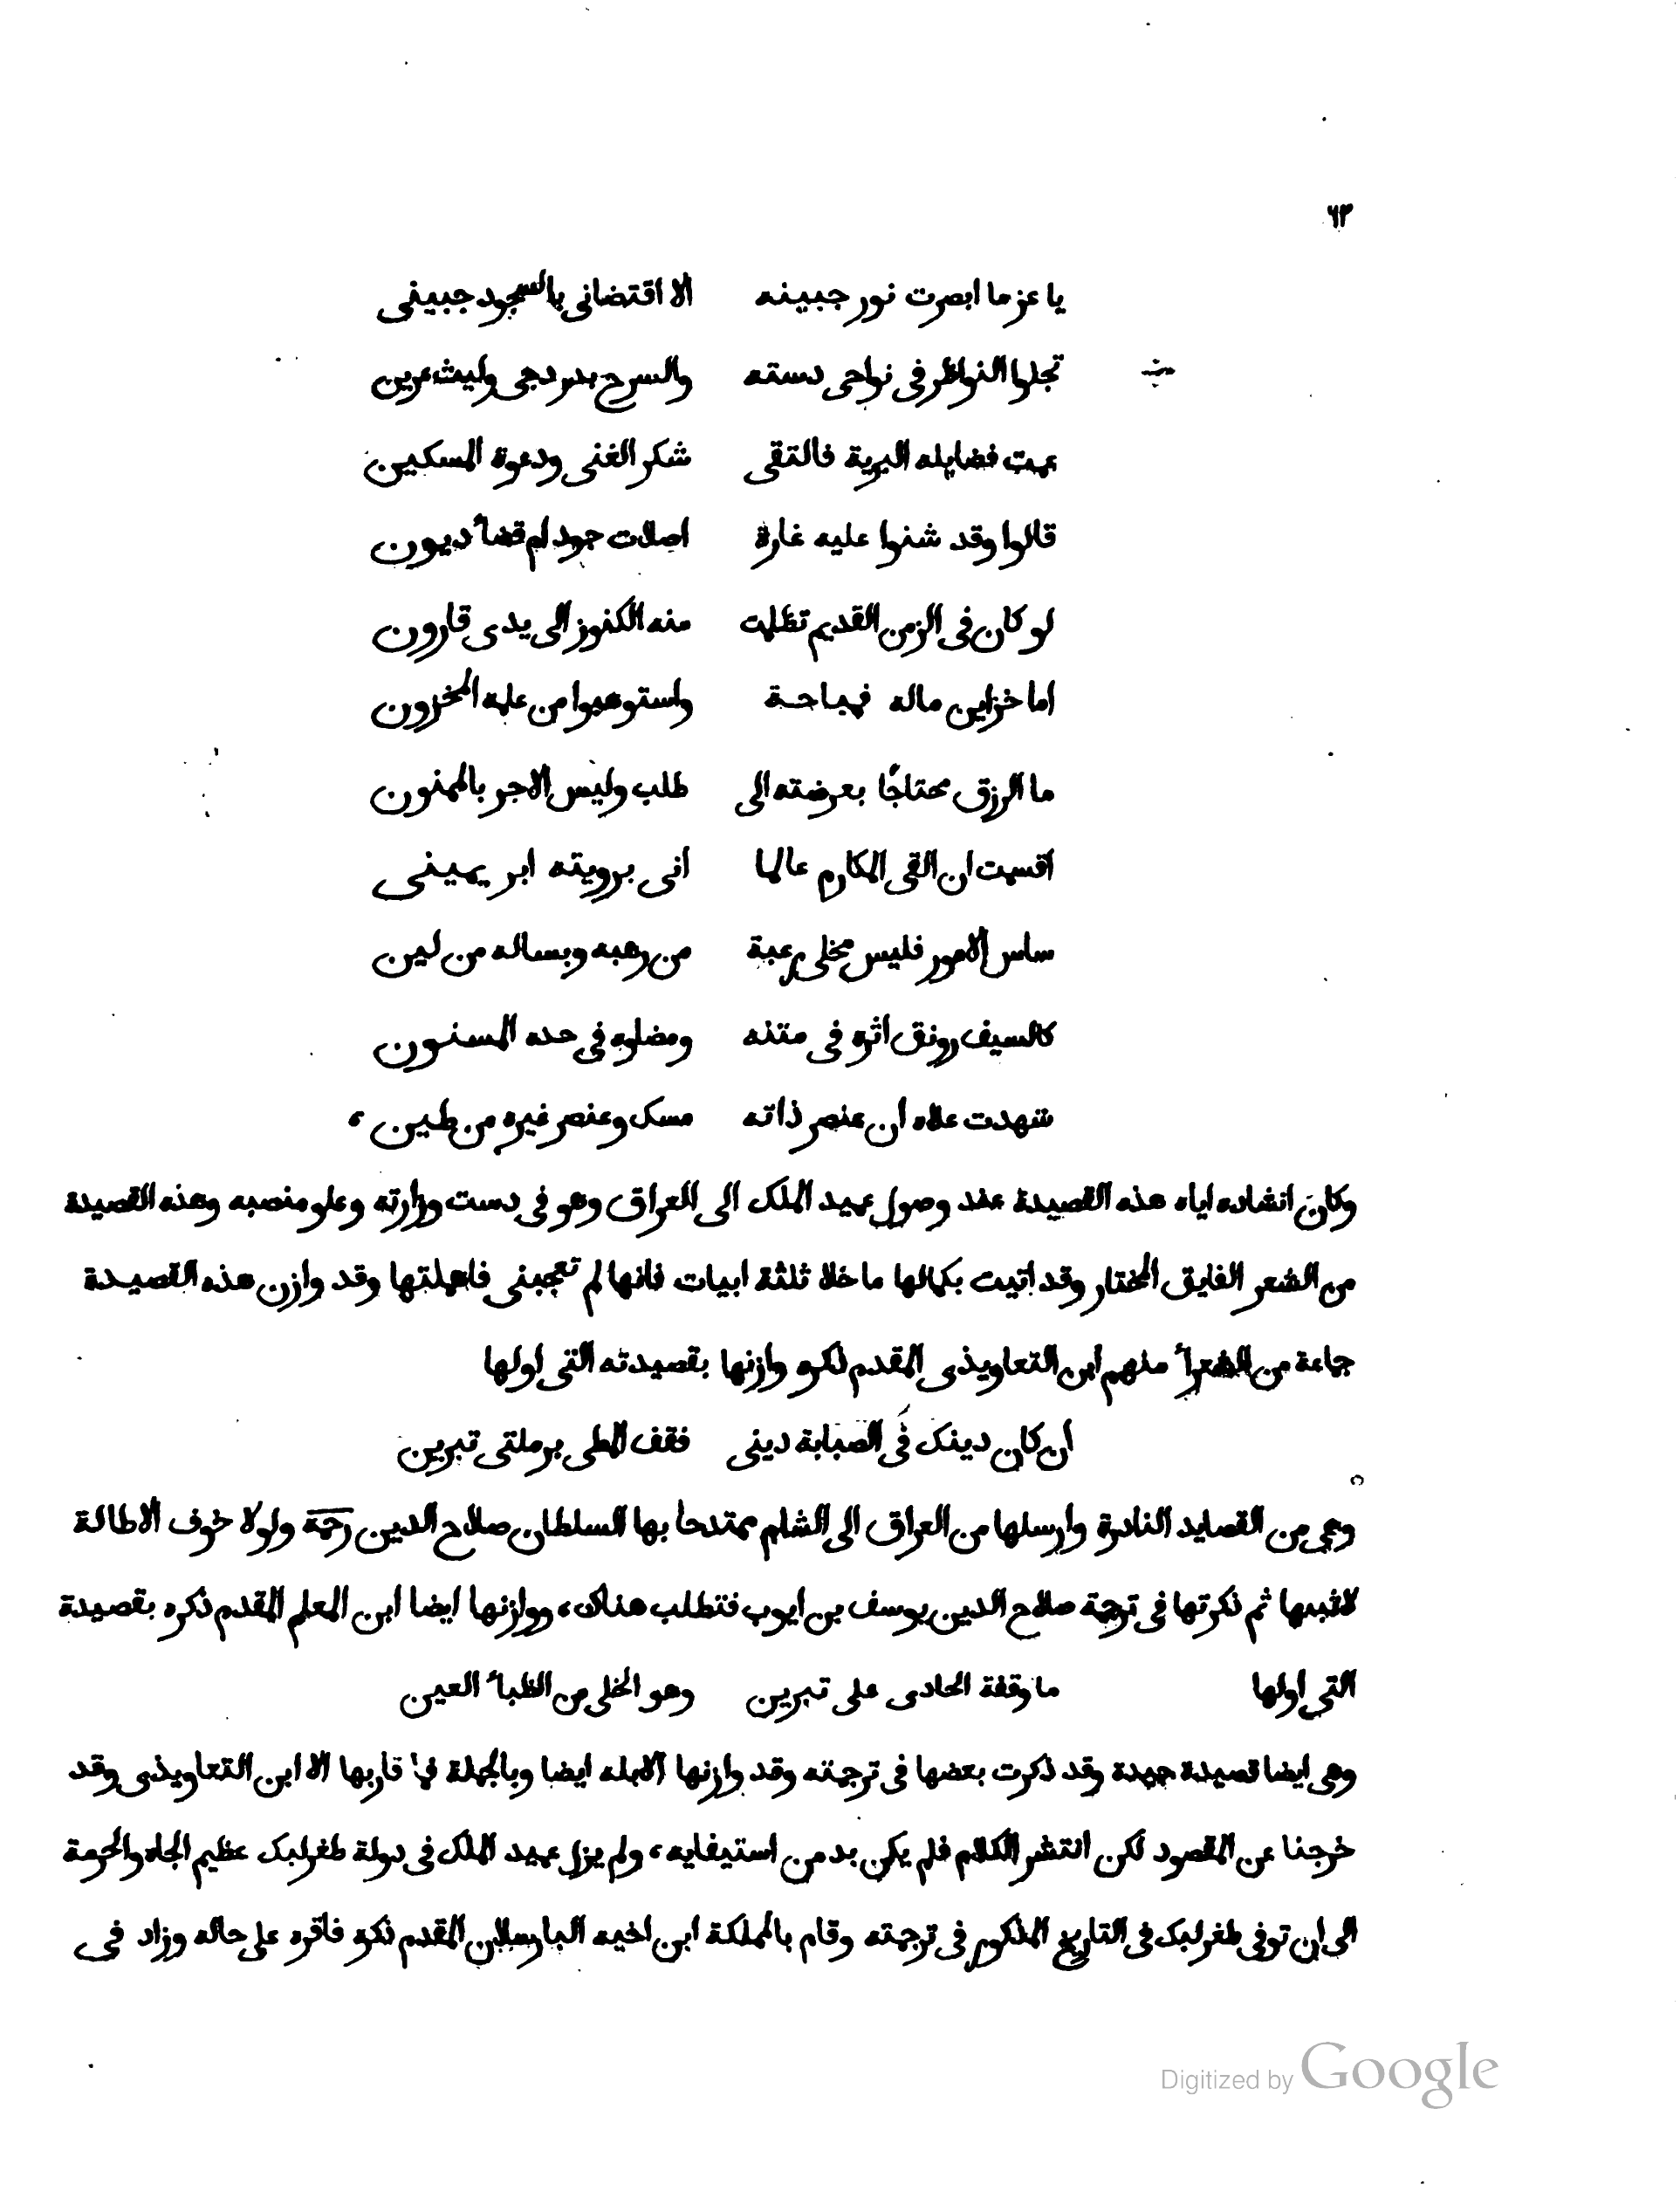 ٦٣
يا عز ما ابصرت نور جبينه الا اقتضانى بالسجود جبينى
تجلوا النواظر فى نواحى دسته والسرج بدر دجى وليث عرين
عمت فضايله البرية فالتقى شكر الغنى ودعوة المسكين
قالوا وقد شنوا عليه غارة اصلات جود ام قضاء ديون
لو كان فى الزمن القديم تظلمت منه الكنوز الى يدى قارون
اما خزاين ماله فمباحة واستوهبوا من علمه المخزون
ما الرزق محتاجًا بعرضته الى طلب وليس الاجر بالممنون
اقسمت ان القى المكارم عالما انى برويته ابر يمينى
ساس الامور فليس مخلى رغبة من رهبه وبساله من لين
كالسيف رونق اثره فى متنه ومضاوه فى حده المسنون
شهدت علاه ان عنصر ذاته مسك وعنصر غيره من طين ،
وكان انشاده اياه هذه القصيدة عند وصول عميد الملك الى العراق وهو فى دست وزارته وعلو منصبه وهذه القصيدة
من الشعر الفايق المختار وقد اتيت بكمالها ما خلا ثلثة ابيات فانها لم تعجبنى فاهملتها وقد وازن هذه القصيدة
جماعة من الشعراء منهم ابن التعاويذى المقدم ذكره وازنها بقصيدته التى اولها
ان كان دينك فى الصبابة دينى فقف المطى برملتى تبرين
وهى من القصايد النادرة وارسلها من العراق الى الشام ممتدحا بها السلطان صلاح الدين رحمه ولولا خوف الاطالة
لاثبتها ثم ذكرتها فى ترجمة صلاح الدين يوسف بن ايوب فتطلب هناك ، ووازنها ايضا ابن المعلم المقدم ذكره بقصيدة
التى اولها ما وقفة الحادى على تبرين وهو الخلى من الظباء العين
وهى ايضا قصيدة جيدة وقد ذكرت بعضها فى ترجمته وقد وازنها الابله ايضا وبالجملة فما قاربها الا ابن التعاويذى وقد
خرجنا عن المقصود لكن انتشر الكلام فلم يكن بد من استيفايه ، ولم يزل عميد الملك فى دولة طغرلبك عظيم الجاه والحرمة
الى ان توفى طغرلبك فى التاريخ المذكور فى ترجمته وقام بالمملكة ابن اخيه البارسلان المقدم ذكره فاقره على حاله وزاد فى
Digitized by Google